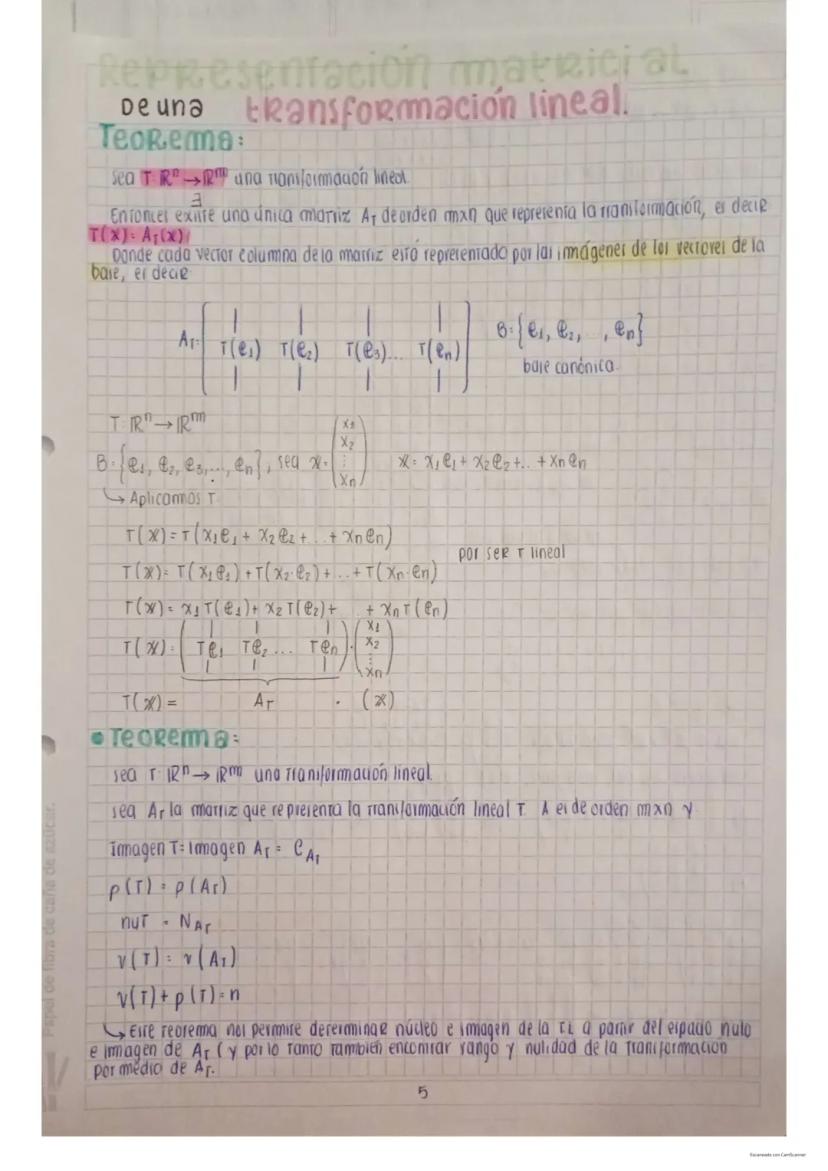 Representación matricial
De una transformación lineal.
Teorema:
sea T: ℝⁿ → ℝᵐ una transformación lineal.
∃
Entonces existe una única matriz A_T de orden mxn que representa la transformación, es decir
T(x) = A_T(x)
Donde cada vector columna de la matriz está representado por las imágenes de los vectores de la
base, es decir
A_T = [ T(e₁) T(e₂) T(e₃)... T(eₙ) ] B = {e₁, e₂, ..., eₙ}
base canónica.
T: ℝⁿ → ℝᵐ
B = {e₁, e₂, e₃, ..., eₙ}, sea x = (x₁ x₂ ⋮ xₙ) x = x₁e₁ + x₂e₂ + ... + xₙeₙ
↳ Aplicamos T
T(x) = T(x₁e₁ + x₂e₂ + ... + xₙeₙ)
por ser T lineal
T(x) = T(x₁e₁) + T(x₂·e₂) + ... + T(xₙ·eₙ)
T(x) = x₁T(e₁) + x₂T(e₂) + ... + xₙT(eₙ)
T(x) = ( Te₁ Te₂ ... Teₙ ) · (x₁ x₂ ⋮ xₙ)
T(x) = A_T · (x)
• Teorema:
sea T: ℝⁿ → ℝᵐ una transformación lineal.
sea A_T la matriz que representa la transformación lineal T. A es de orden mxn y
Imagen T = Imagen A_T = C_{A_T}
ρ(T) = ρ(A_T)
nuT = N_{A_T}
ν(T) = ν(A_T)
ν(T) + ρ(T) = n
↳ Este teorema nos permite determinar núcleo e imagen de la TL a partir del espacio nulo
e imagen de A_T (y por lo tanto también encontrar rango y nulidad de la transformación
por medio de A_T.
5
Papel de fibra de caña de azúcar.
Escaneado con CamScanner